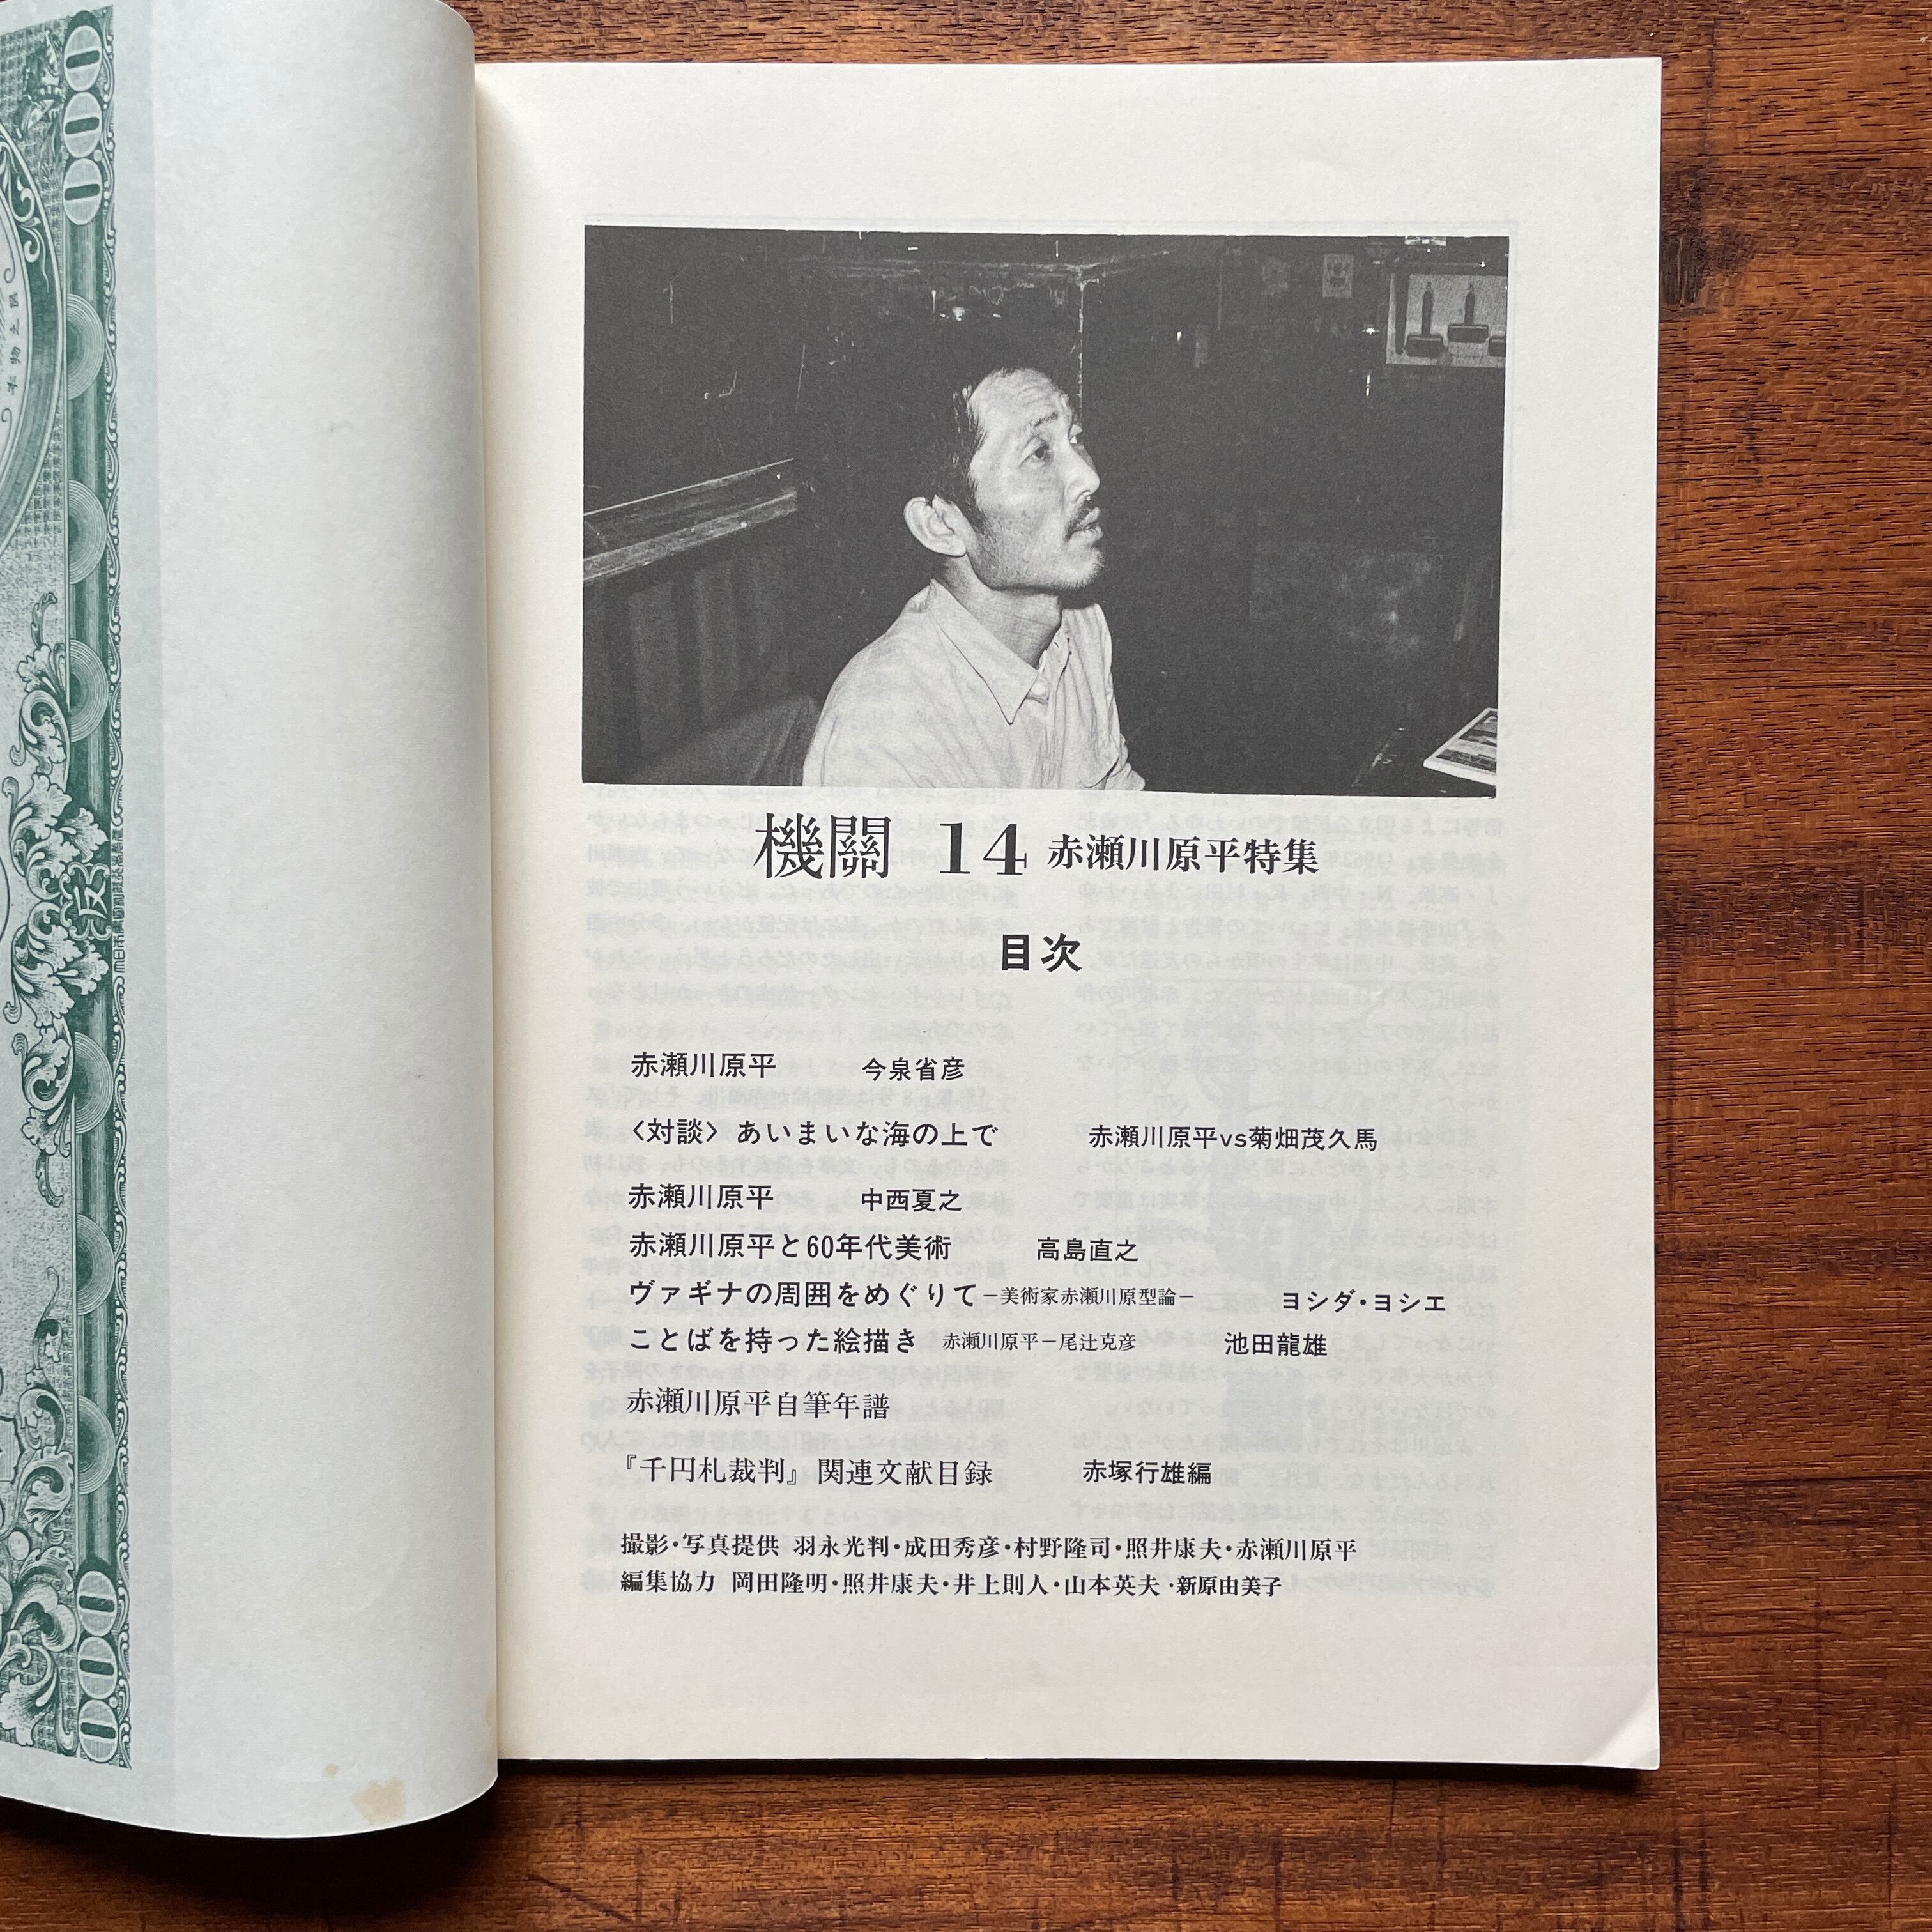 機關 14 赤瀬川原平特集
目次
赤瀬川原平 今泉省彦
〈対談〉あいまいな海の上で 赤瀬川原平vs菊畑茂久馬
赤瀬川原平 中西夏之
赤瀬川原平と60年代美術 高島直之
ヴァギナの周囲をめぐりて－美術家赤瀬川原型論－ ヨシダ・ヨシエ
ことばを持った絵描き 赤瀬川原平－尾辻克彦 池田龍雄
赤瀬川原平自筆年譜
『千円札裁判』関連文献目録 赤塚行雄編
撮影・写真提供 羽永光判・成田秀彦・村野隆司・照井康夫・赤瀬川原平
編集協力 岡田隆明・照井康夫・井上則人・山本英夫・新原由美子